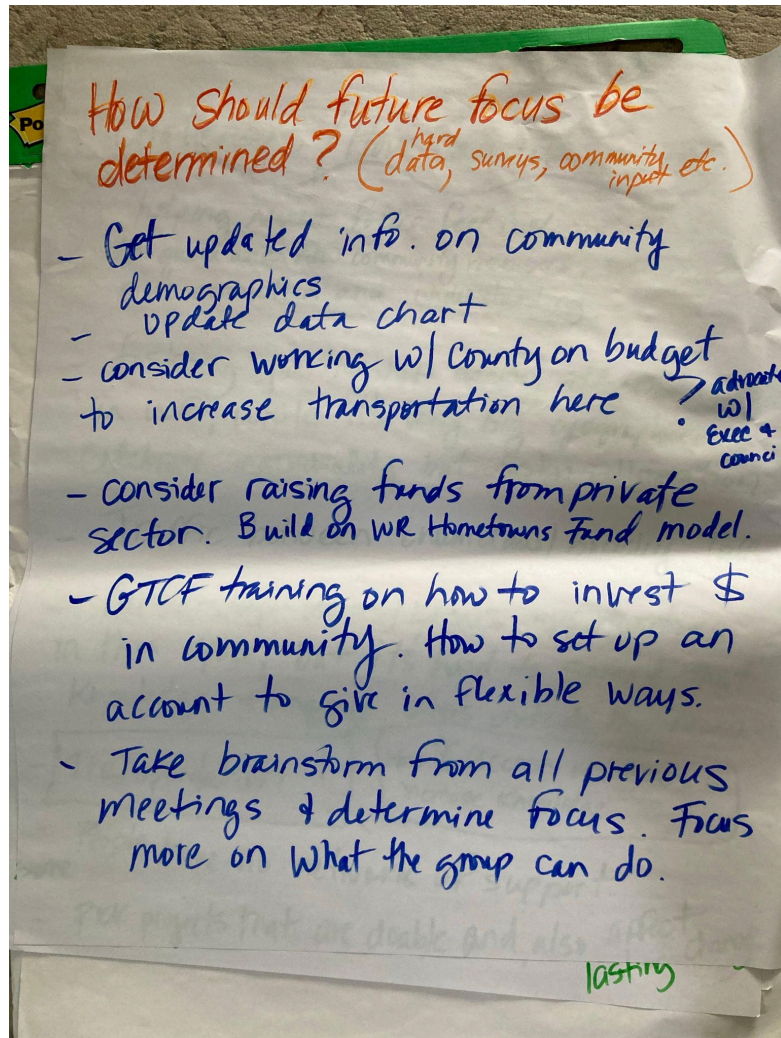 How should future focus be
determined? (hard data, surveys, community input etc.)
- Get updated info. on community
demographics
- update data chart
- consider working w/ County on budget
to increase transportation here
? advocate
w/
Exec &
counci
- consider raising funds from private
sector. Build on WR Hometowns Fund model.
- GTCF training on how to invest $
in community. How to set up an
account to give in flexible ways.
- Take brainstorm from all previous
meetings & determine focus. Focus
more on what the group can do.
Pick projects that are doable and also affect
lasting
Po